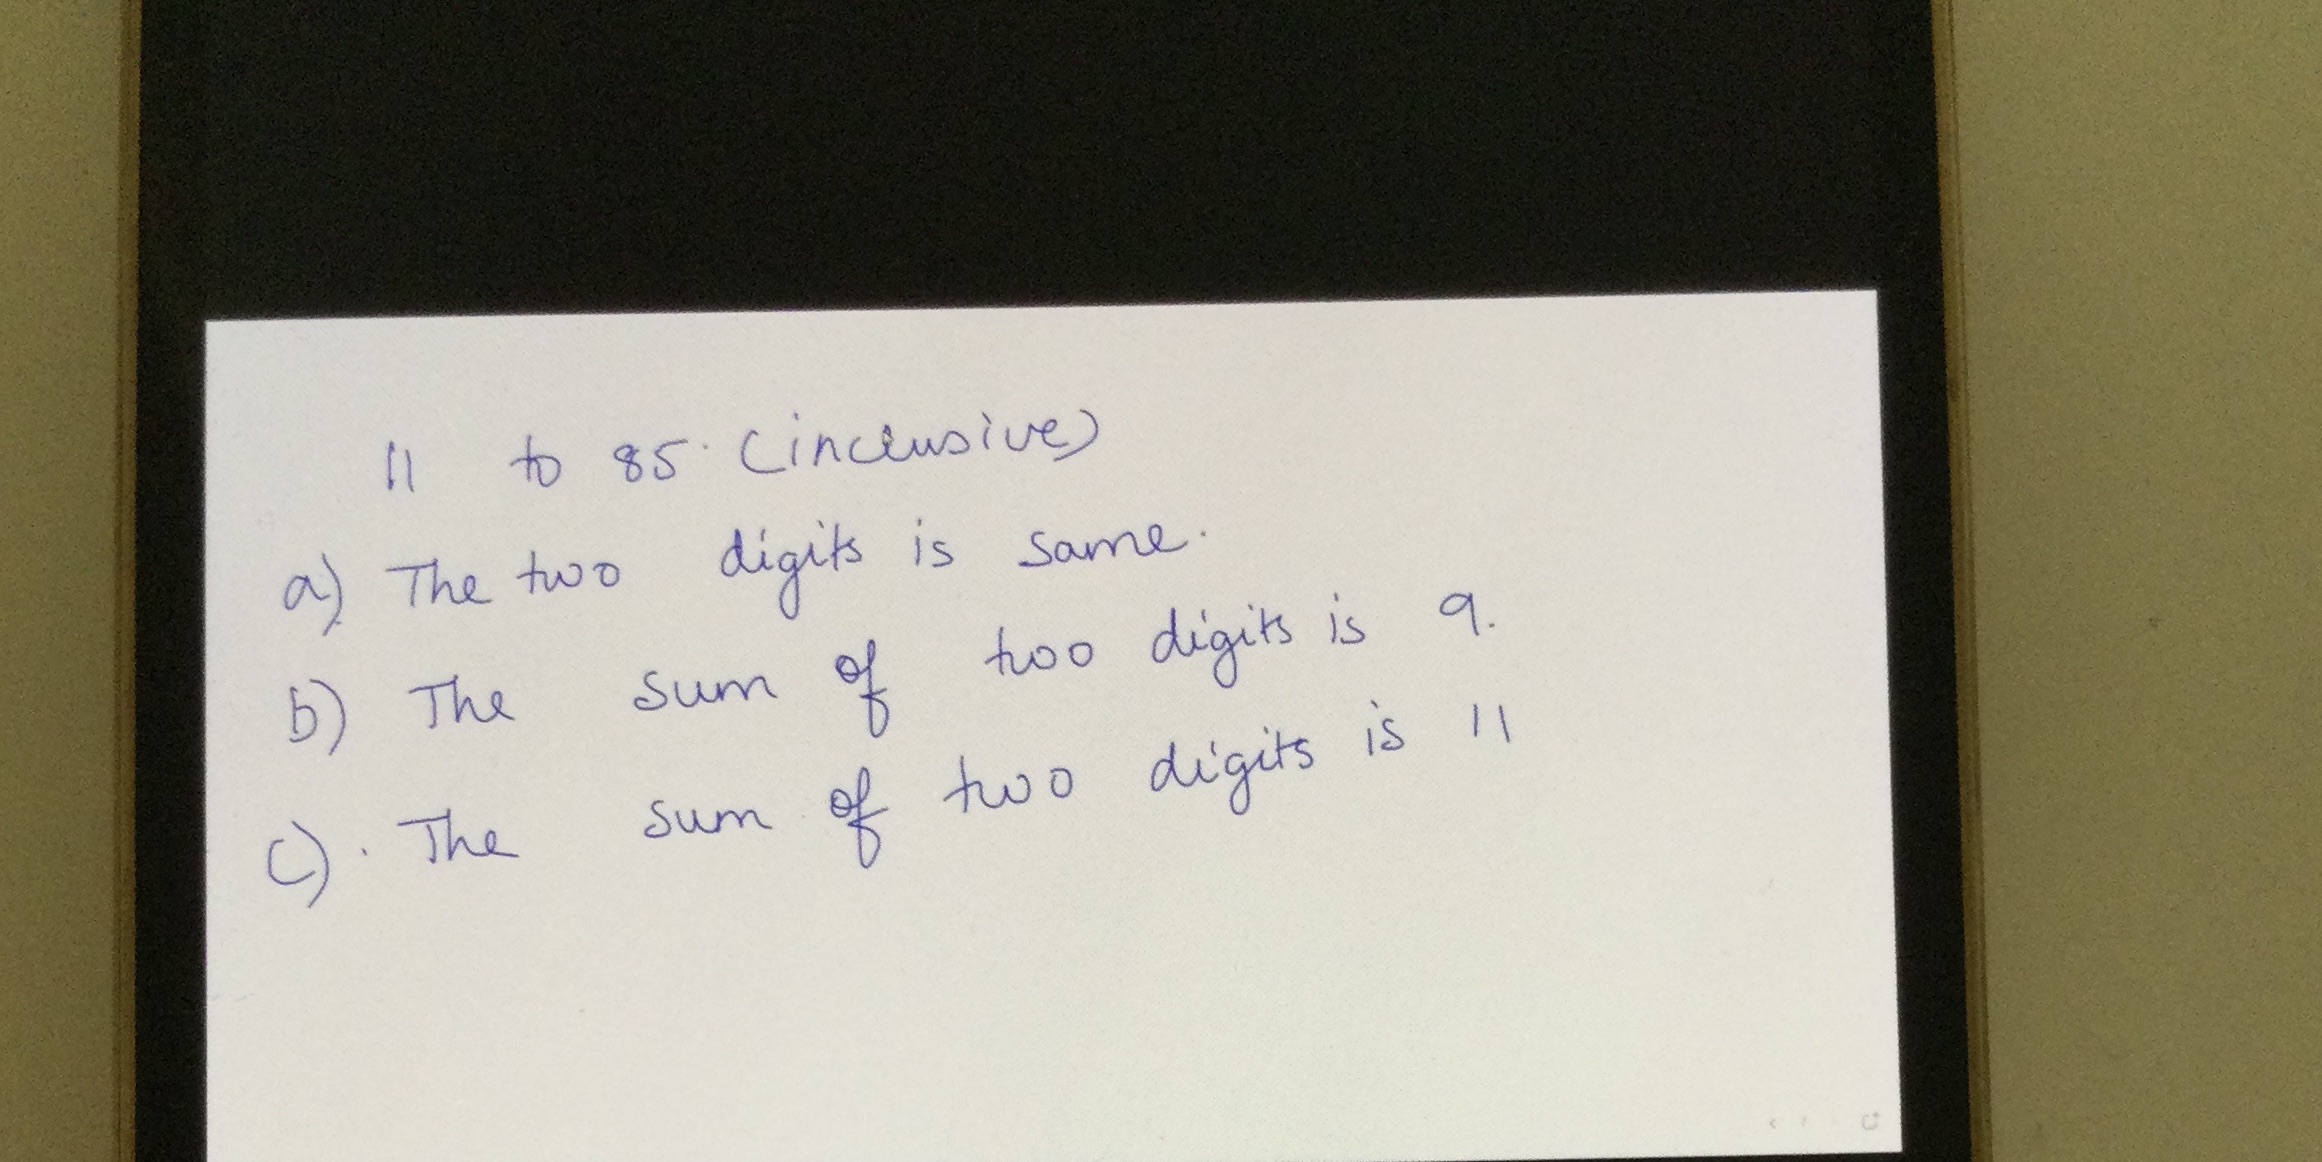 11 to 85. (inclusive)
a) The two digits is same.
b) The sum of two digits is 9.
c). The sum of two digits is 11